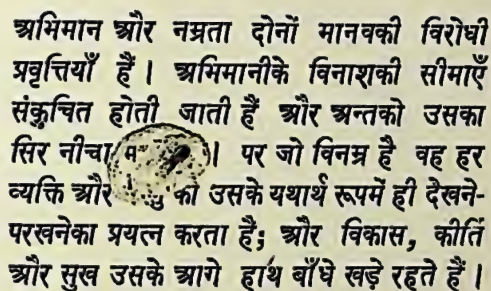 अभिमान और नम्रता दोनों मानवकी विरोधी
प्रवृत्तियाँ हैं। अभिमानीके विनाशकी सीमाएँ
संकुचित होती जाती हैं और अन्तको उसका
सिर नीचा । पर जो विनम्र है वह हर
व्यक्ति और को उसके यथार्थ रूपमें ही देखने-
परखनेका प्रयत्न करता है; और विकास, कीर्ति
और सुख उसके आगे हाथ बाँधे खड़े रहते हैं।